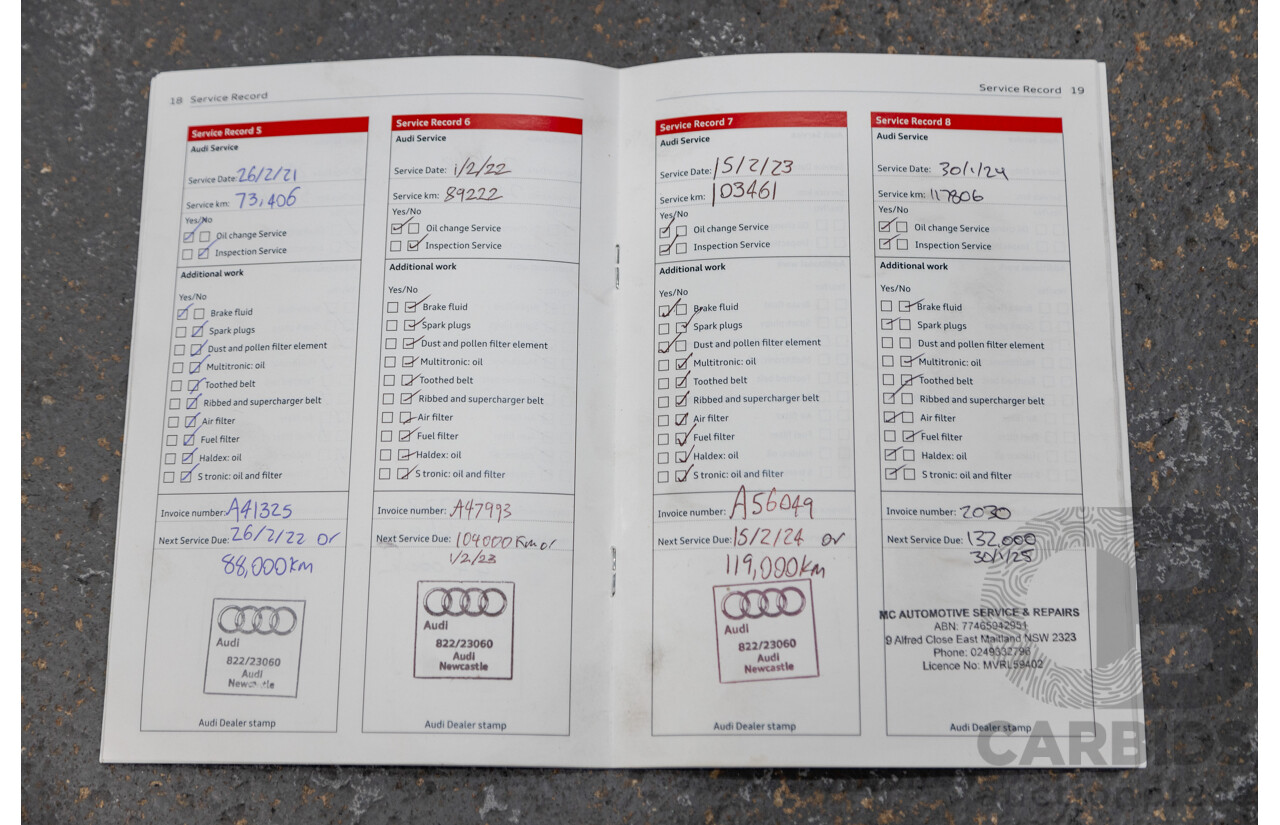 18 Service Record
Service Record 5
Audi Service
Service Date: 26/2/21
Service km: 73,406
Yes/No
Oil change Service
Inspection Service
Additional work
Yes/No
Brake fluid
Spark plugs
Dust and pollen filter element
Multitronic: oil
Toothed belt
Ribbed and supercharger belt
Air filter
Fuel filter
Haldex: oil
S tronic: oil and filter
Invoice number: A41325
Next Service Due: 26/2/22 or
88,000km
Audi
822/23060
Audi
Newcastle
Audi Dealer stamp
Service Record 6
Audi Service
Service Date: 1/2/22
Service km: 89222
Yes/No
Oil change Service
Inspection Service
Additional work
Yes/No
Brake fluid
Spark plugs
Dust and pollen filter element
Multitronic: oil
Toothed belt
Ribbed and supercharger belt
Air filter
Fuel filter
Haldex: oil
S tronic: oil and filter
Invoice number: A47993
Next Service Due: 104000 Km or
1/2/23
Audi
822/23060
Audi
Newcastle
Audi Dealer stamp
Service Record 19
Service Record 7
Audi Service
Service Date: 15/2/23
Service km: 103461
Yes/No
Oil change Service
Inspection Service
Additional work
Yes/No
Brake fluid
Spark plugs
Dust and pollen filter element
Multitronic: oil
Toothed belt
Ribbed and supercharger belt
Air filter
Fuel filter
Haldex: oil
S tronic: oil and filter
Invoice number: A56049
Next Service Due: 15/2/24 or
119,000km
Audi
822/23060
Audi
Newcastle
Audi Dealer stamp
Service Record 8
Audi Service
Service Date: 30/1/24
Service km: 117806
Yes/No
Oil change Service
Inspection Service
Additional work
Yes/No
Brake fluid
Spark plugs
Dust and pollen filter element
Multitronic: oil
Toothed belt
Ribbed and supercharger belt
Air filter
Fuel filter
Haldex: oil
S tronic: oil and filter
Invoice number: 2030
Next Service Due: 132,000
30/1/25
MC AUTOMOTIVE SERVICE & REPAIRS
ABN: 77465942951
9 Alfred Close East Maitland NSW 2323
Phone: 0249332796
Licence No: MVRL59402
Audi Dealer stamp
CARBIDS